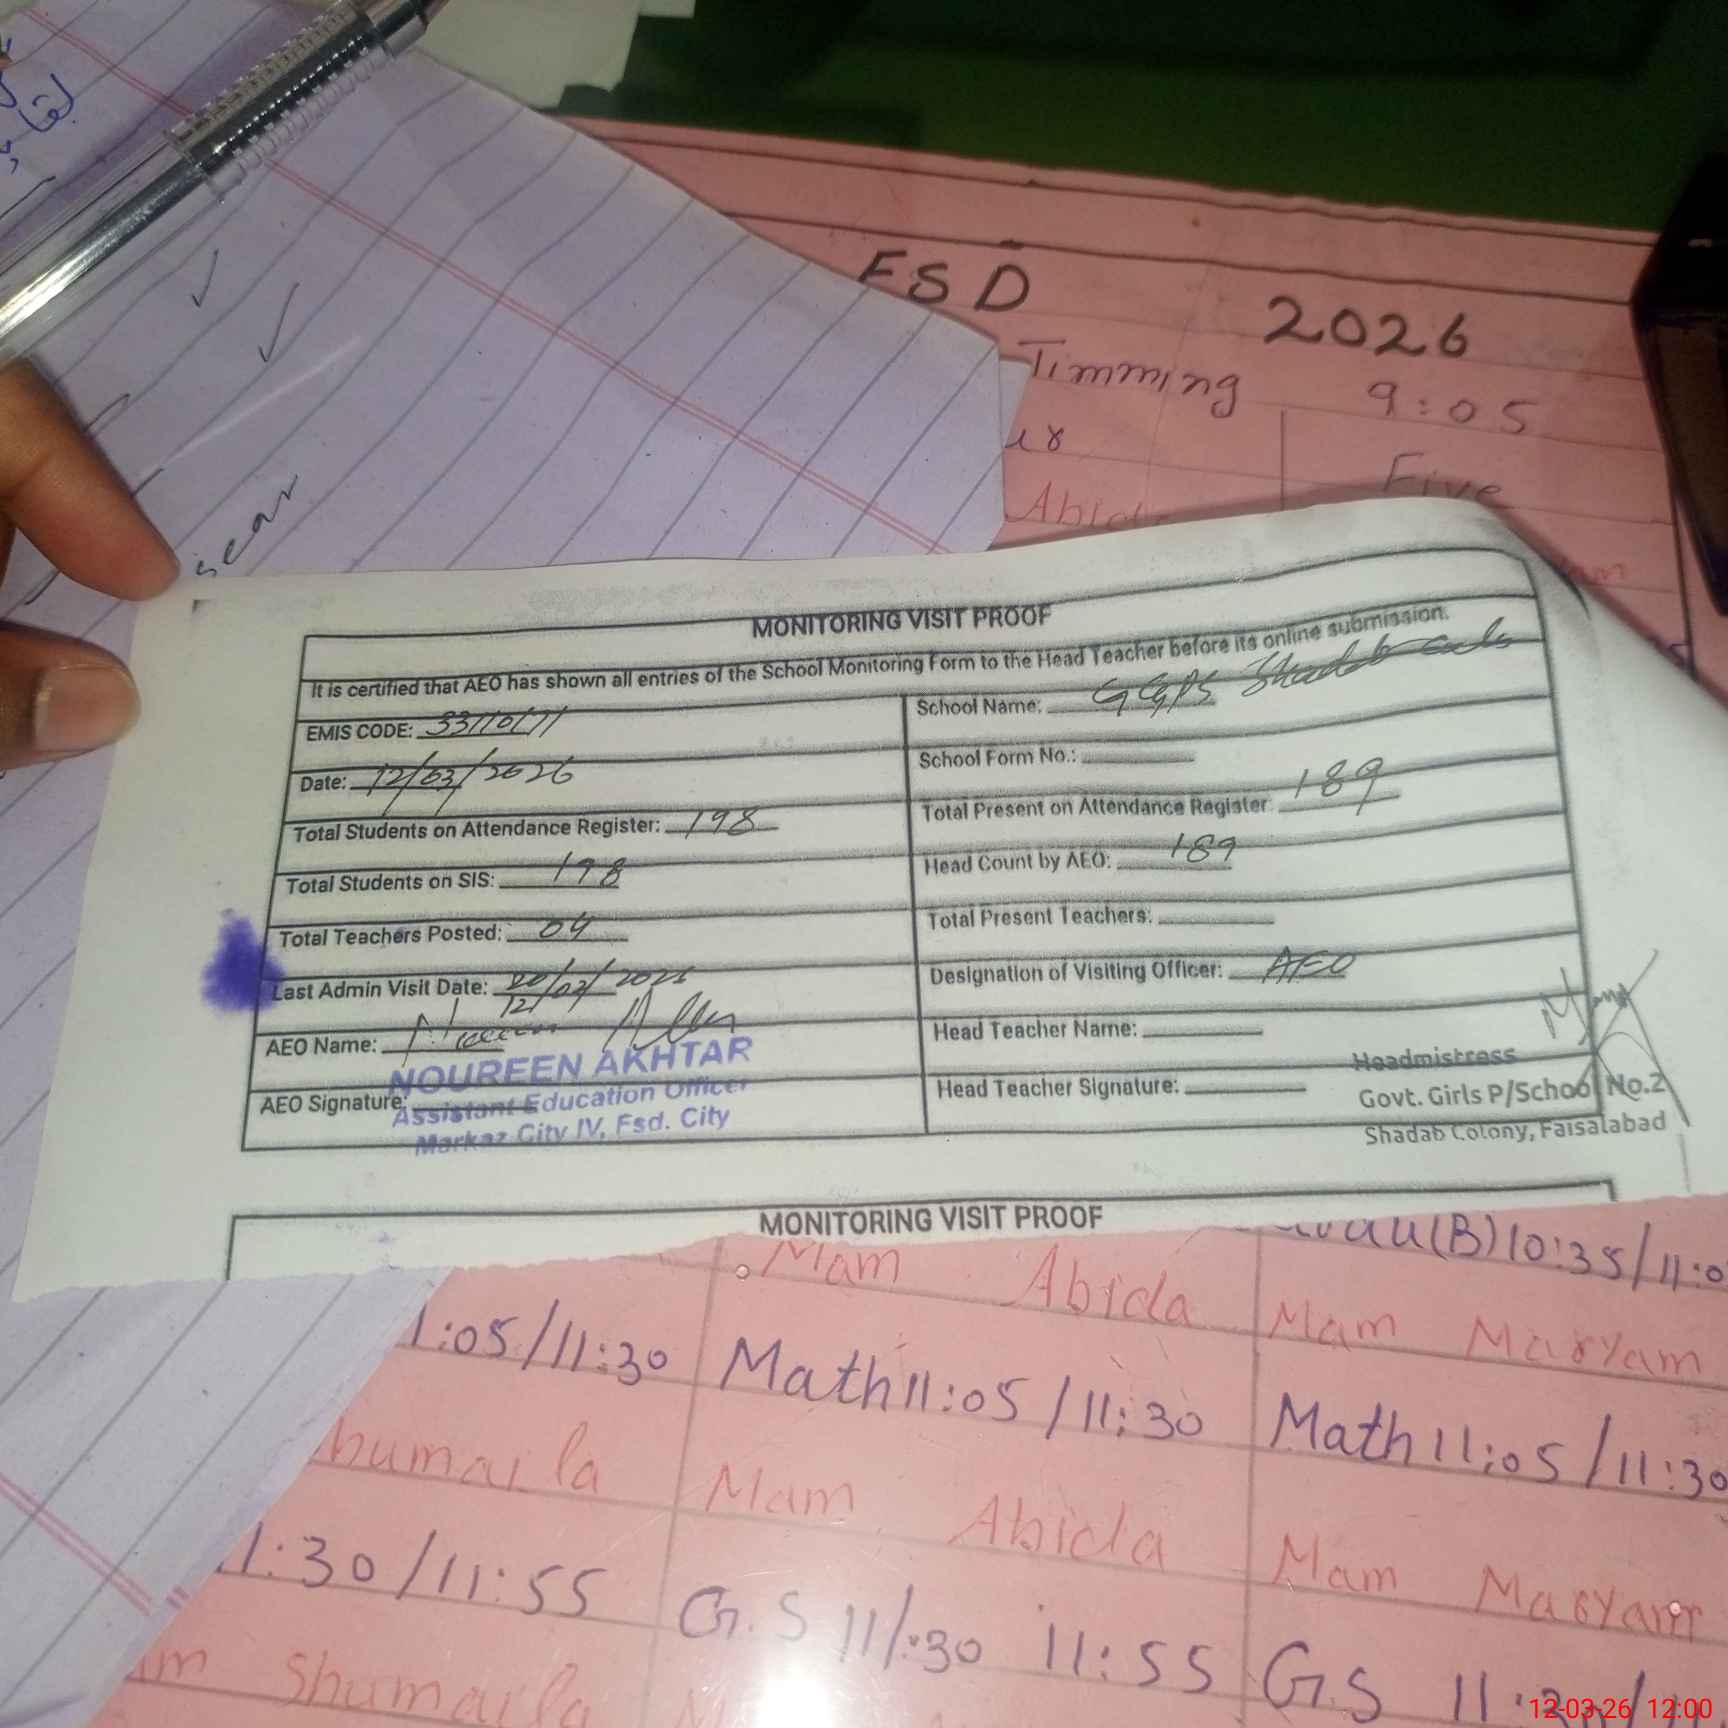 FSD 2026
Timming 9:05
Five
Abida
MONITORING VISIT PROOF
It is certified that AEO has shown all entries of the School Monitoring Form to the Head Teacher before its online submission.
EMIS CODE:
School Name: GGPS Shadab
Date: 12/03/2026
School Form No.:
Total Students on Attendance Register: 198
Total Present on Attendance Register: 189
Total Students on SIS: 198
Head Count by AEO: 189
Total Teachers Posted: 04
Total Present Teachers:
Last Admin Visit Date:
Designation of Visiting Officer: AEO
AEO Name: Noureen
Head Teacher Name:
AEO Signature:
Head Teacher Signature:
NOUREEN AKHTAR
Assistant Education Officer
Markaz City IV, Fsd. City
Headmistress
Govt. Girls P/School No.2
Shadab Colony, Faisalabad
MONITORING VISIT PROOF
(B) 10:35/11:0
Mam Abida Mam Maryam
1:05/11:30 Math 11:05/11:30 Math 11:05/11:30
humaila Mam Abida Mam Maryam
1:30/11:55 G.S 11/:30 11:55 G.S 11:30/
m Shumaila
12-03-26 12:00